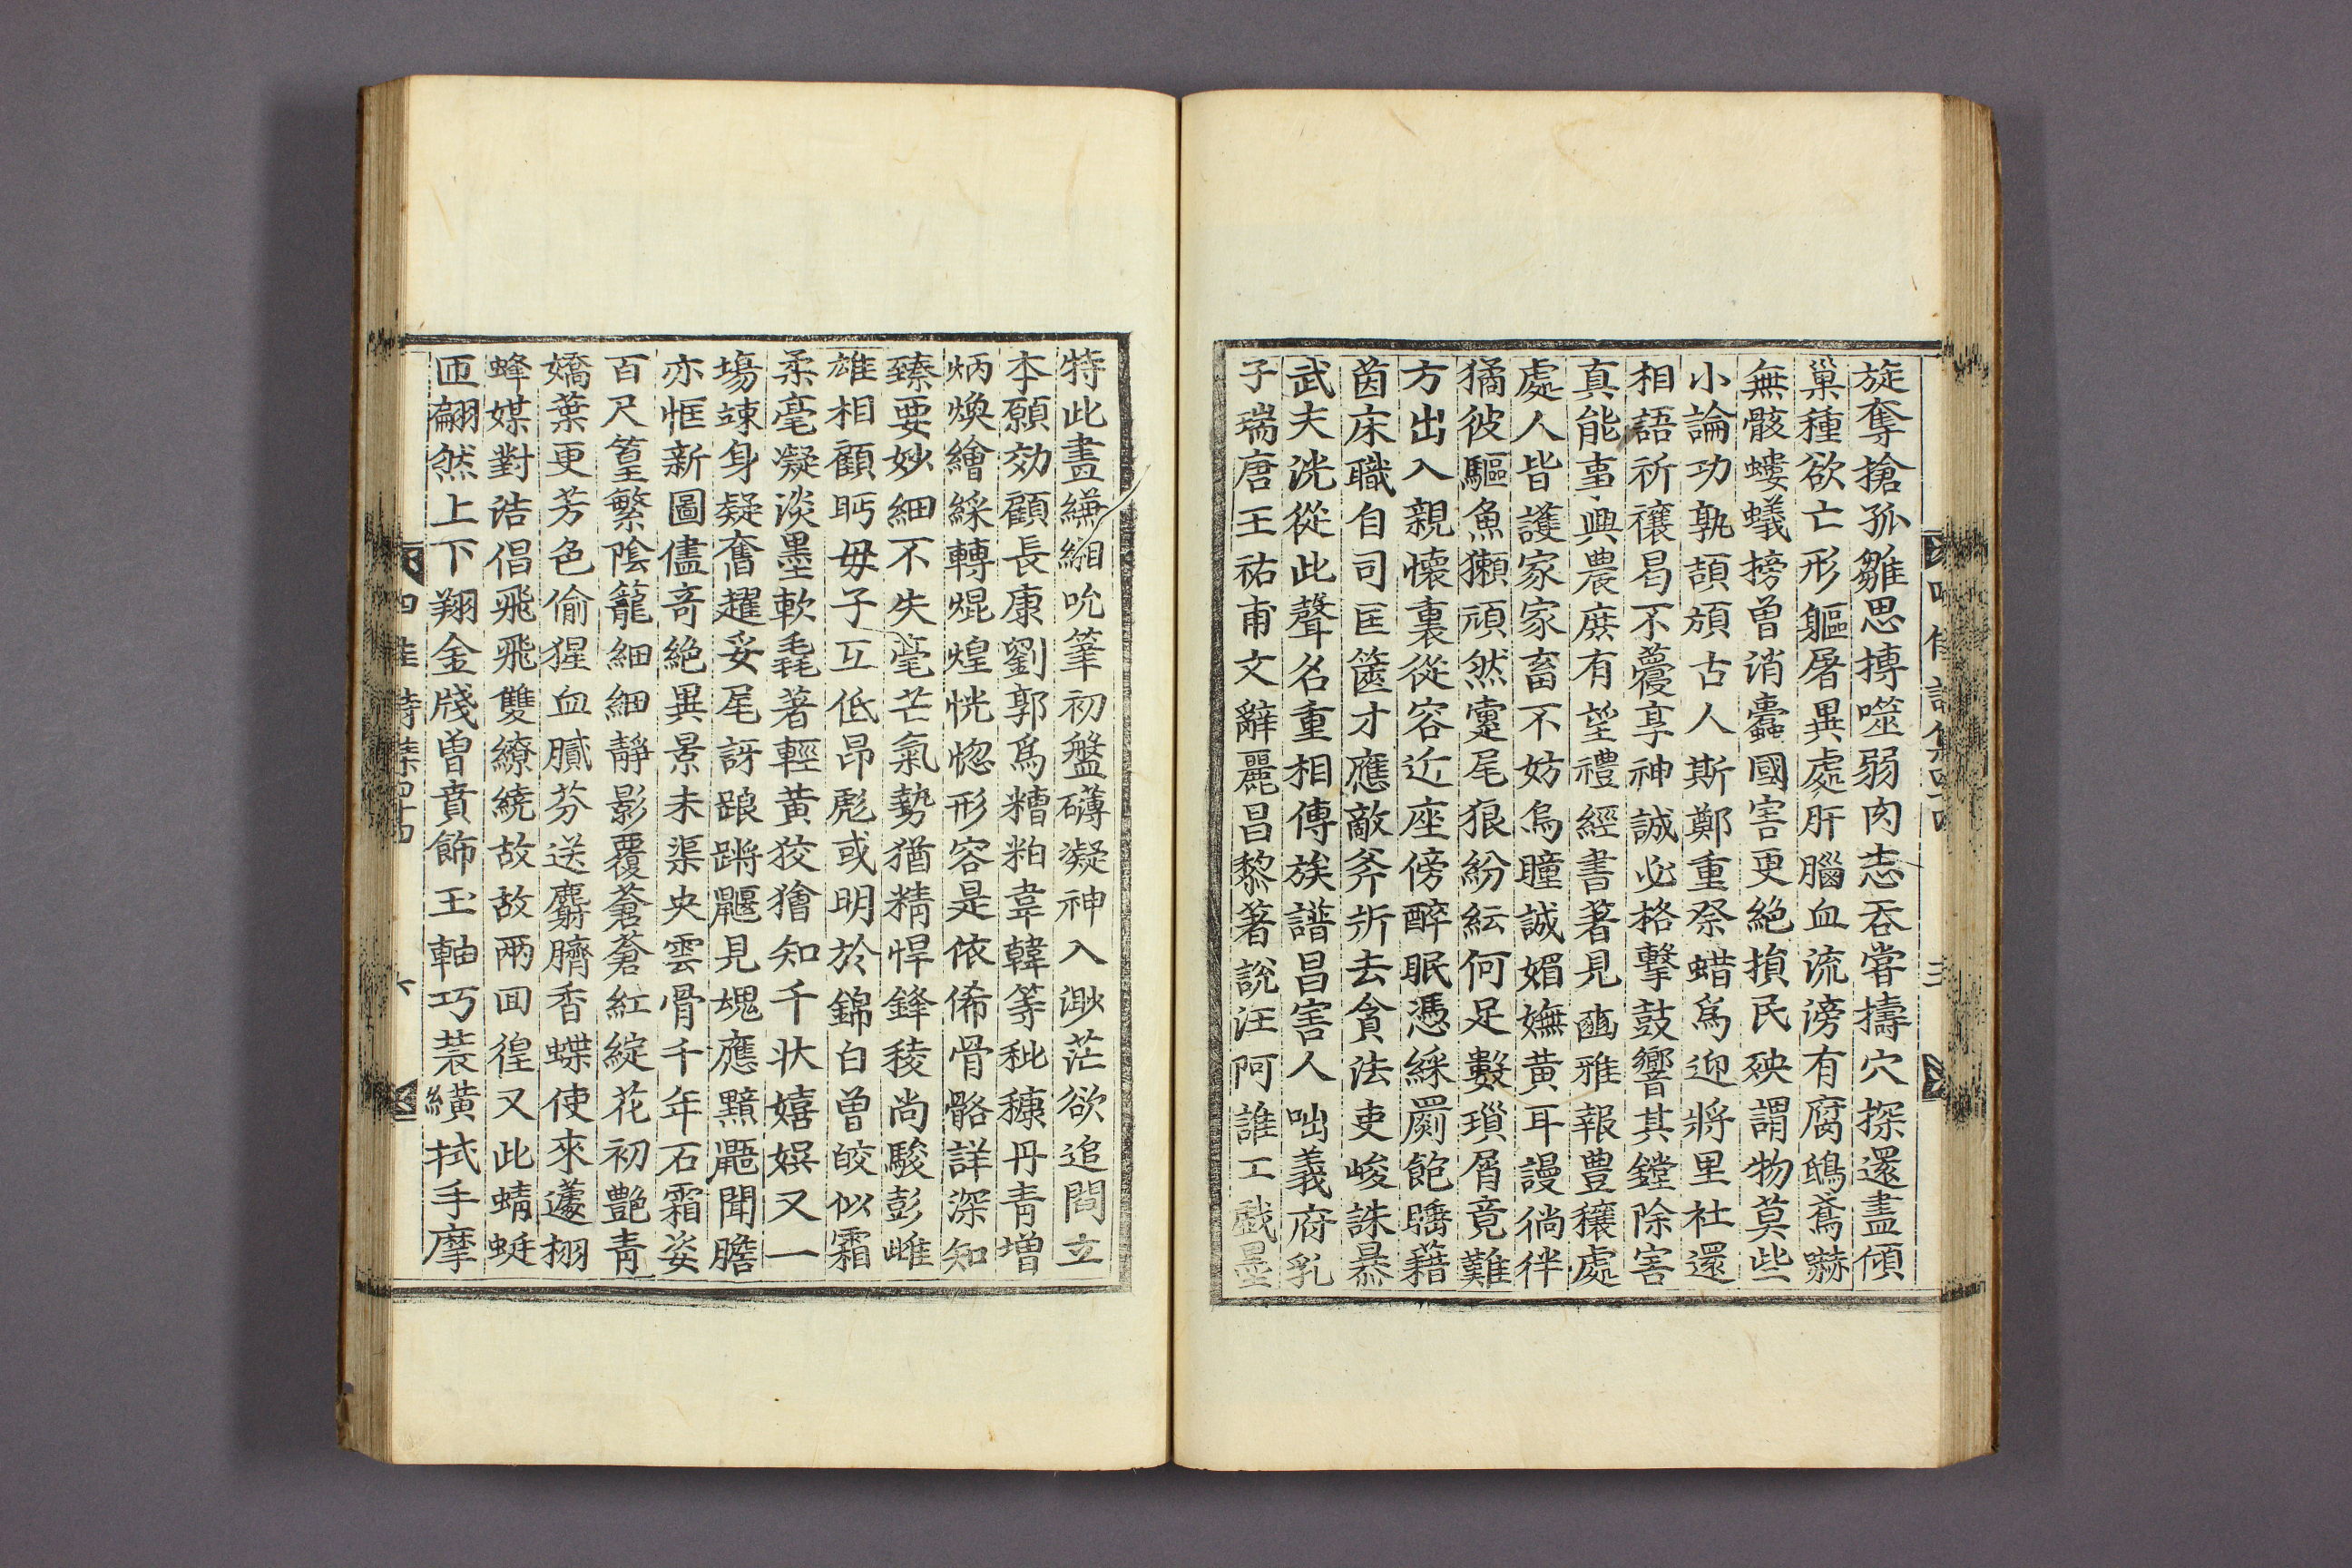 旋奪搶孤雛思搏噬弱肉恣吞嘗擣穴探還盡傾
巢種欲亡形軀屠異處肝腦血流滂有腐鴟鳶嚇
無骸螻蟻搒曽消蠹國害更絶損民殃謂物莫些
小論功孰頡頏古人斯鄭重祭蜡爲迎將里社還
相語祈禳曷不蘉享神誠必格擊鼓響其鏜除害
真能事興農庶有望禮經書著見豳雅報豊穰處
處人皆護家家畜不妨烏瞳誠媚嫵黄耳謾徜徉
獝彼驅魚獺頑然㝠尾狼紛紜何足數瑣屑竟難
方出入親懷裏從容近座傍醉眠憑綵罽飽䁖藉
茵床職自司匡篋才應敵斧斨去貪法吏峻誅㬥
武夫洸從此聲名重相傳族譜昌害人咄義府乳
子瑞唐王祐甫文辭麗昌黎著說汪阿誰工戱墨
特此畫縑緗吮筆初盤礴凝神入渺茫欲追閻立
本願効顧長康劉郭爲糟粕韋韓等秕穅丹青增
炳煥繪綵轉焜煌恍惚形容是依俙骨骼詳深知
臻要妙細不失毫芒氣勢猶精悍鋒稜尚駿彭雌
雄相顧眄毋子互低昂彪或明於錦白曽皎似霜
柔毫凝淡墨軟毳著輕黄狡獪知千狀嬉娛又一
塲竦身疑奮趯妥尾訝踉蹡鼴見媿應黯鼯聞膽
亦恇新圖儘竒絶異景未渠央雲骨千年石霜姿
百尺篁繁陰籠細細靜影覆蒼蒼紅綻花初艶青
嬌葉更芳色偷猩血膩芬送麝臍香蝶使來蘧栩
蜂媒對詰倡飛飛雙繚繞故故兩回徨又此蜻蜓
匝翩然上下翔金牋曽賁飾玉軸巧裝䌙拭手摩